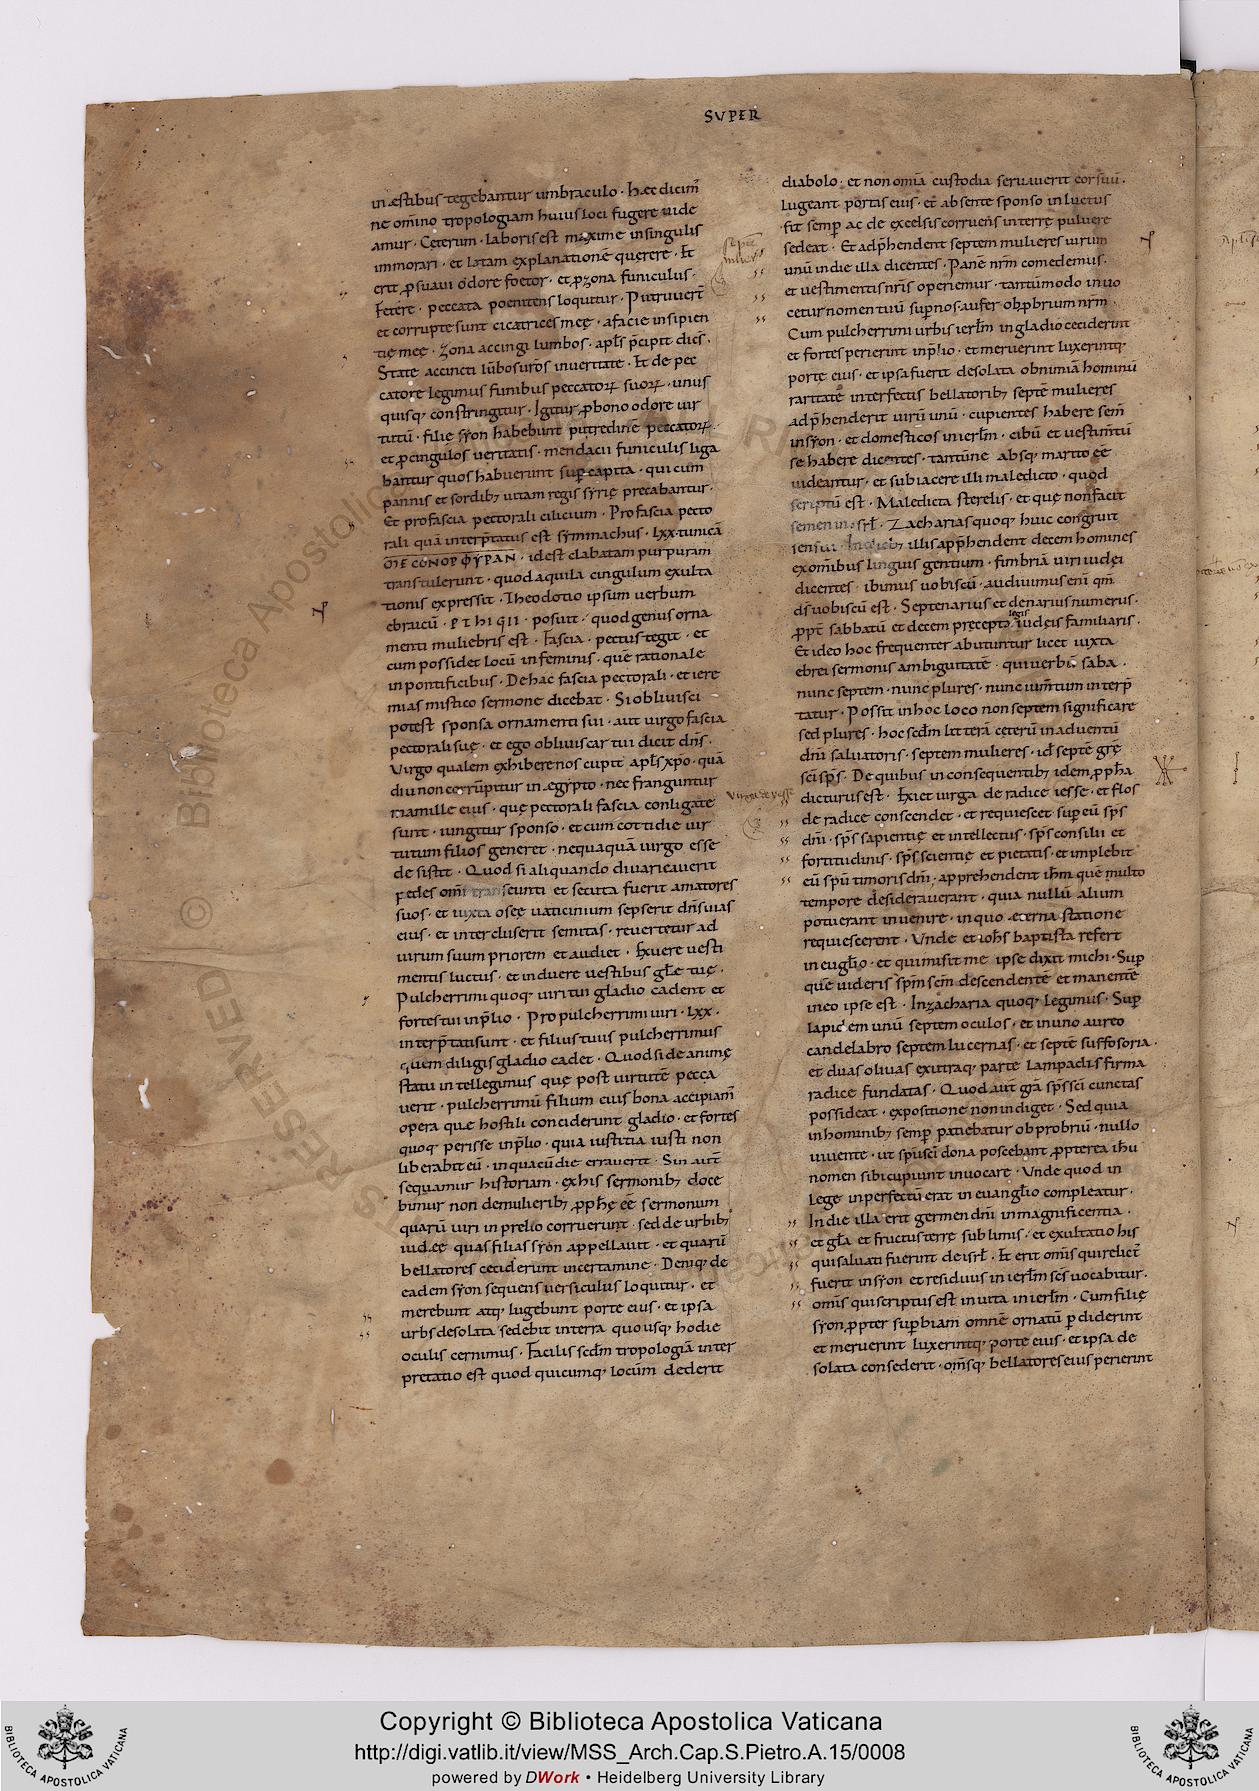 SVPER
in æstibus tegebantur umbraculo · Hæc dicim̄
ne om̄ino tropologiam huius loci fugere uide
amur · Ceterum · laboris est maxime in singulis
immorari · et latam explanationē querere · Et
erit ꝓ suaui odore foetor · et ꝓ zona funiculus ·
Fetere · peccata poenitens loquitur · Putruer̄t
et corrupte sunt cicatrices meę · a facie insipien
tię meę · Zona accingi lumbos · apl̄s p̄cipit dicēs ·
State accincti lūbos ur̄os in ueritate · Et de pec
catore legimus funibus peccatoꝝ suoꝝ · unus
quisq; constringitur · Igitur ꝓ bono odore uir
tutū · filię syon habebunt putredinē peccatoꝝ ·
et ꝓ cingulos ueritatis · mendacii funiculis liga
bantur quos habuerunt sup̄ capita · qui cum
pannis et sordib; uitam regis syrię precabantur ·
Et pro fascia pectorali cilicium · Pro fascia pecto
rali quā interp̄tatus est symmachus · lxx · tunicā
idest clabatam purpuram
transtulerunt · quod aquila cingulum exulta
tionis expressit · Theodotio ipsum uerbum
ebraicū · posuit · quod genus orna
menti muliebris est · Fascia · pectus tegit · et
cum possidet locū in feminis · quē rationale
in pontificibus · De hac fascia pectorali · et iere
mias mistico sermone dicebat · Si obliuisci
potest sponsa ornamenti sui · aut uirgo fascia
pectorali suę · et ego obliuiscar tui dicit dn̄s ·
Virgo qualem exhibere nos cupit apl̄s xp̄o · quā
diu non corrūpitur in ægypto · nec franguntur
mamille eius · quę pectorali fascia conligate
sunt · iungitur sponso · et cum cottidie uir
tutum filios generet · nequaquā uirgo esse
desistit · Quod si aliquando diuaricauerit
pedes om̄i transeunti et secuta fuerit amatores
suos · et iuxta osee uaticinium sepserit dn̄s uias
eius · et intercluserit semitas · reuertetur ad
uirum suum priorem et audiet · Exuere uesti
mentis luctus · et induere uestibus gl̄ę tuę ·
Pulcherrimi quoq; uiri tui gladio cadent et
fortes tui in p̄lio · Pro pulcherrimi uiri · lxx ·
interp̄tati sunt · et filius tuus pulcherrimus
quem diligis gladio cadet · Quod si de animę
statu intellegimus quę post uirtutē pecca
uerit · pulcherrimū filium eius bona accipiam̄
opera quæ hostili conciderunt gladio · et fortes
quoq; perisse in p̄lio · quia iustitia iusti non
liberabit eū · in quacū die errauerit · Sin aut̄
sequamur historiam · ex his sermonib; doce
bimur non de mulierib; ꝓph̄ę eē sermonum
quarū uiri in prelio corruerunt · sed de urbib;
iudeę quas filias syon appellauit · et quarū
bellatores ceciderunt in certamine · Deniq; de
eadem syon sequens uersiculus loquitur · et
merebunt atq; lugebunt porte eius · et ipsa
urbs desolata sedebit in terra quousq; hodie
oculis cernimus · Facilis scd̄m tropologiā inter
pretatio est quod quicumq; locum dederit
diabolo · et non om̄ia custodia seruauerit cor suū ·
lugeant portę eius · et absente sponso in luctus
fit semp̄ ac de excelsis corruens in terrę puluere
sedeat · Et adp̄hendent septem mulieres uirum
unū in die illa dicentes · Panē nr̄m comedemus ·
et uestimentis nr̄is operiemur · tantūmodo inuo
cetur nomen tuū sup̄ nos · aufer obꝓbrium nr̄m ·
Cum pulcherrimi urbis ierl̄m in gladio ceciderint
et fortes perierint in p̄lio · et meruerint luxerintq;
porte eius · et ipsa fuerit desolata ob nimiā hominū
raritatē interfectis bellatorib; septē mulieres
adp̄henderit uirū unū · cupientes habere sem̄
in syon · et domesticos in ierl̄m · cibū et uestim̄tū
se habere dicentes · tantū ne absq; marito eē
uideantur · et subiacere illi maledicto · quod
scriptū est · Maledicta sterelis · et quę non facit
semen in isrl̄ · Zacharias quoq; huic congruit
sensui · In dieb; illis app̄hendent decem homines
ex om̄ibus linguis gentium · fimbriā uiri iudei
dicentes · ibimus uobiscū · audiuimus eni qm̄
ds̄ uobiscū est · Septenarius et denarius numerus ·
ꝓpt̄ sabbatū et decem precepta legis iudeis familiaris ·
Et ideo hoc frequenter abutuntur licet iuxta
ebrei sermonis ambiguitatē · qui uerbū saba ·
nunc septem · nunc plures · nunc iuram̄tum interp̄
tatur · Possit in hoc loco non septem significare
sed plures · hoc scd̄m litterā ceterū in aduentū
dn̄i saluatoris · septem mulieres · id septē grę
sc̄i sp̄s · De quibus in consequentib; idem ꝓph̄a
dicturus est · Exiet uirga de radice iesse · et flos
de radice conscendet · et requiescet sup̄ eū sp̄s
dn̄i · sp̄s sapientię et intellectus · sp̄s consilii et
fortitudinis · sp̄s scientię et pietatis · et implebit
eū sp̄u timoris dn̄i · apprehendent ih̄m quē multo
tempore desiderauerant · quia nullū alium
potuerant inuenire · in quo æterna statione
requiescerent · Vnde et ioh̄s baptista refert
in eugl̄io · et qui misit me ipse dixit michi · Sup̄
quē uideris sp̄m sc̄m descendentē et manentē
in eo ipse est · In zacharia quoq; legimus · Sup̄
lapidem unū septem oculos · et in uno aureo
candelabro septem lucernas · et septē suffosoria ·
et duas oliuas ex utraq; parte lampadis firma
radice fundatas · Quod aut̄ grā sp̄s sc̄i cunctas
possideat · expositione non indiget · Sed quia
in hominib; semp̄ patiebatur obprobriū · nullo
uiuente · ut sp̄us sc̄i dona poscebant ꝓpterea ih̄u
nomen sibi cupiunt inuocare · Vnde quod in
lege inperfectū erat in euangl̄io compleatur ·
In die illa erit germen dn̄i in magnificentia ·
et gl̄a et fructus terrę sublimis · et exultatio his
qui saluati fuerint de isrl̄ · Et erit om̄is qui relict̄
fuerit in syon et residuus in ierl̄m sc̄s uocabitur ·
om̄is qui scriptus est in uita in ierl̄m · Cum filię
syon ꝓpter sup̄biam omnē ornatū p̄diderint
et meruerint luxerintq; porte eius · et ipsa de
solata consederit · om̄sq; bellatores eius perierint
Copyright © Biblioteca Apostolica Vaticana
http://digi.vatlib.it/view/MSS_Arch.Cap.S.Pietro.A.15/0008
powered by DWork • Heidelberg University Library
BIBLIOTECA APOSTOLICA VATICANA
BIBLIOTECA APOSTOLICA VATICANA